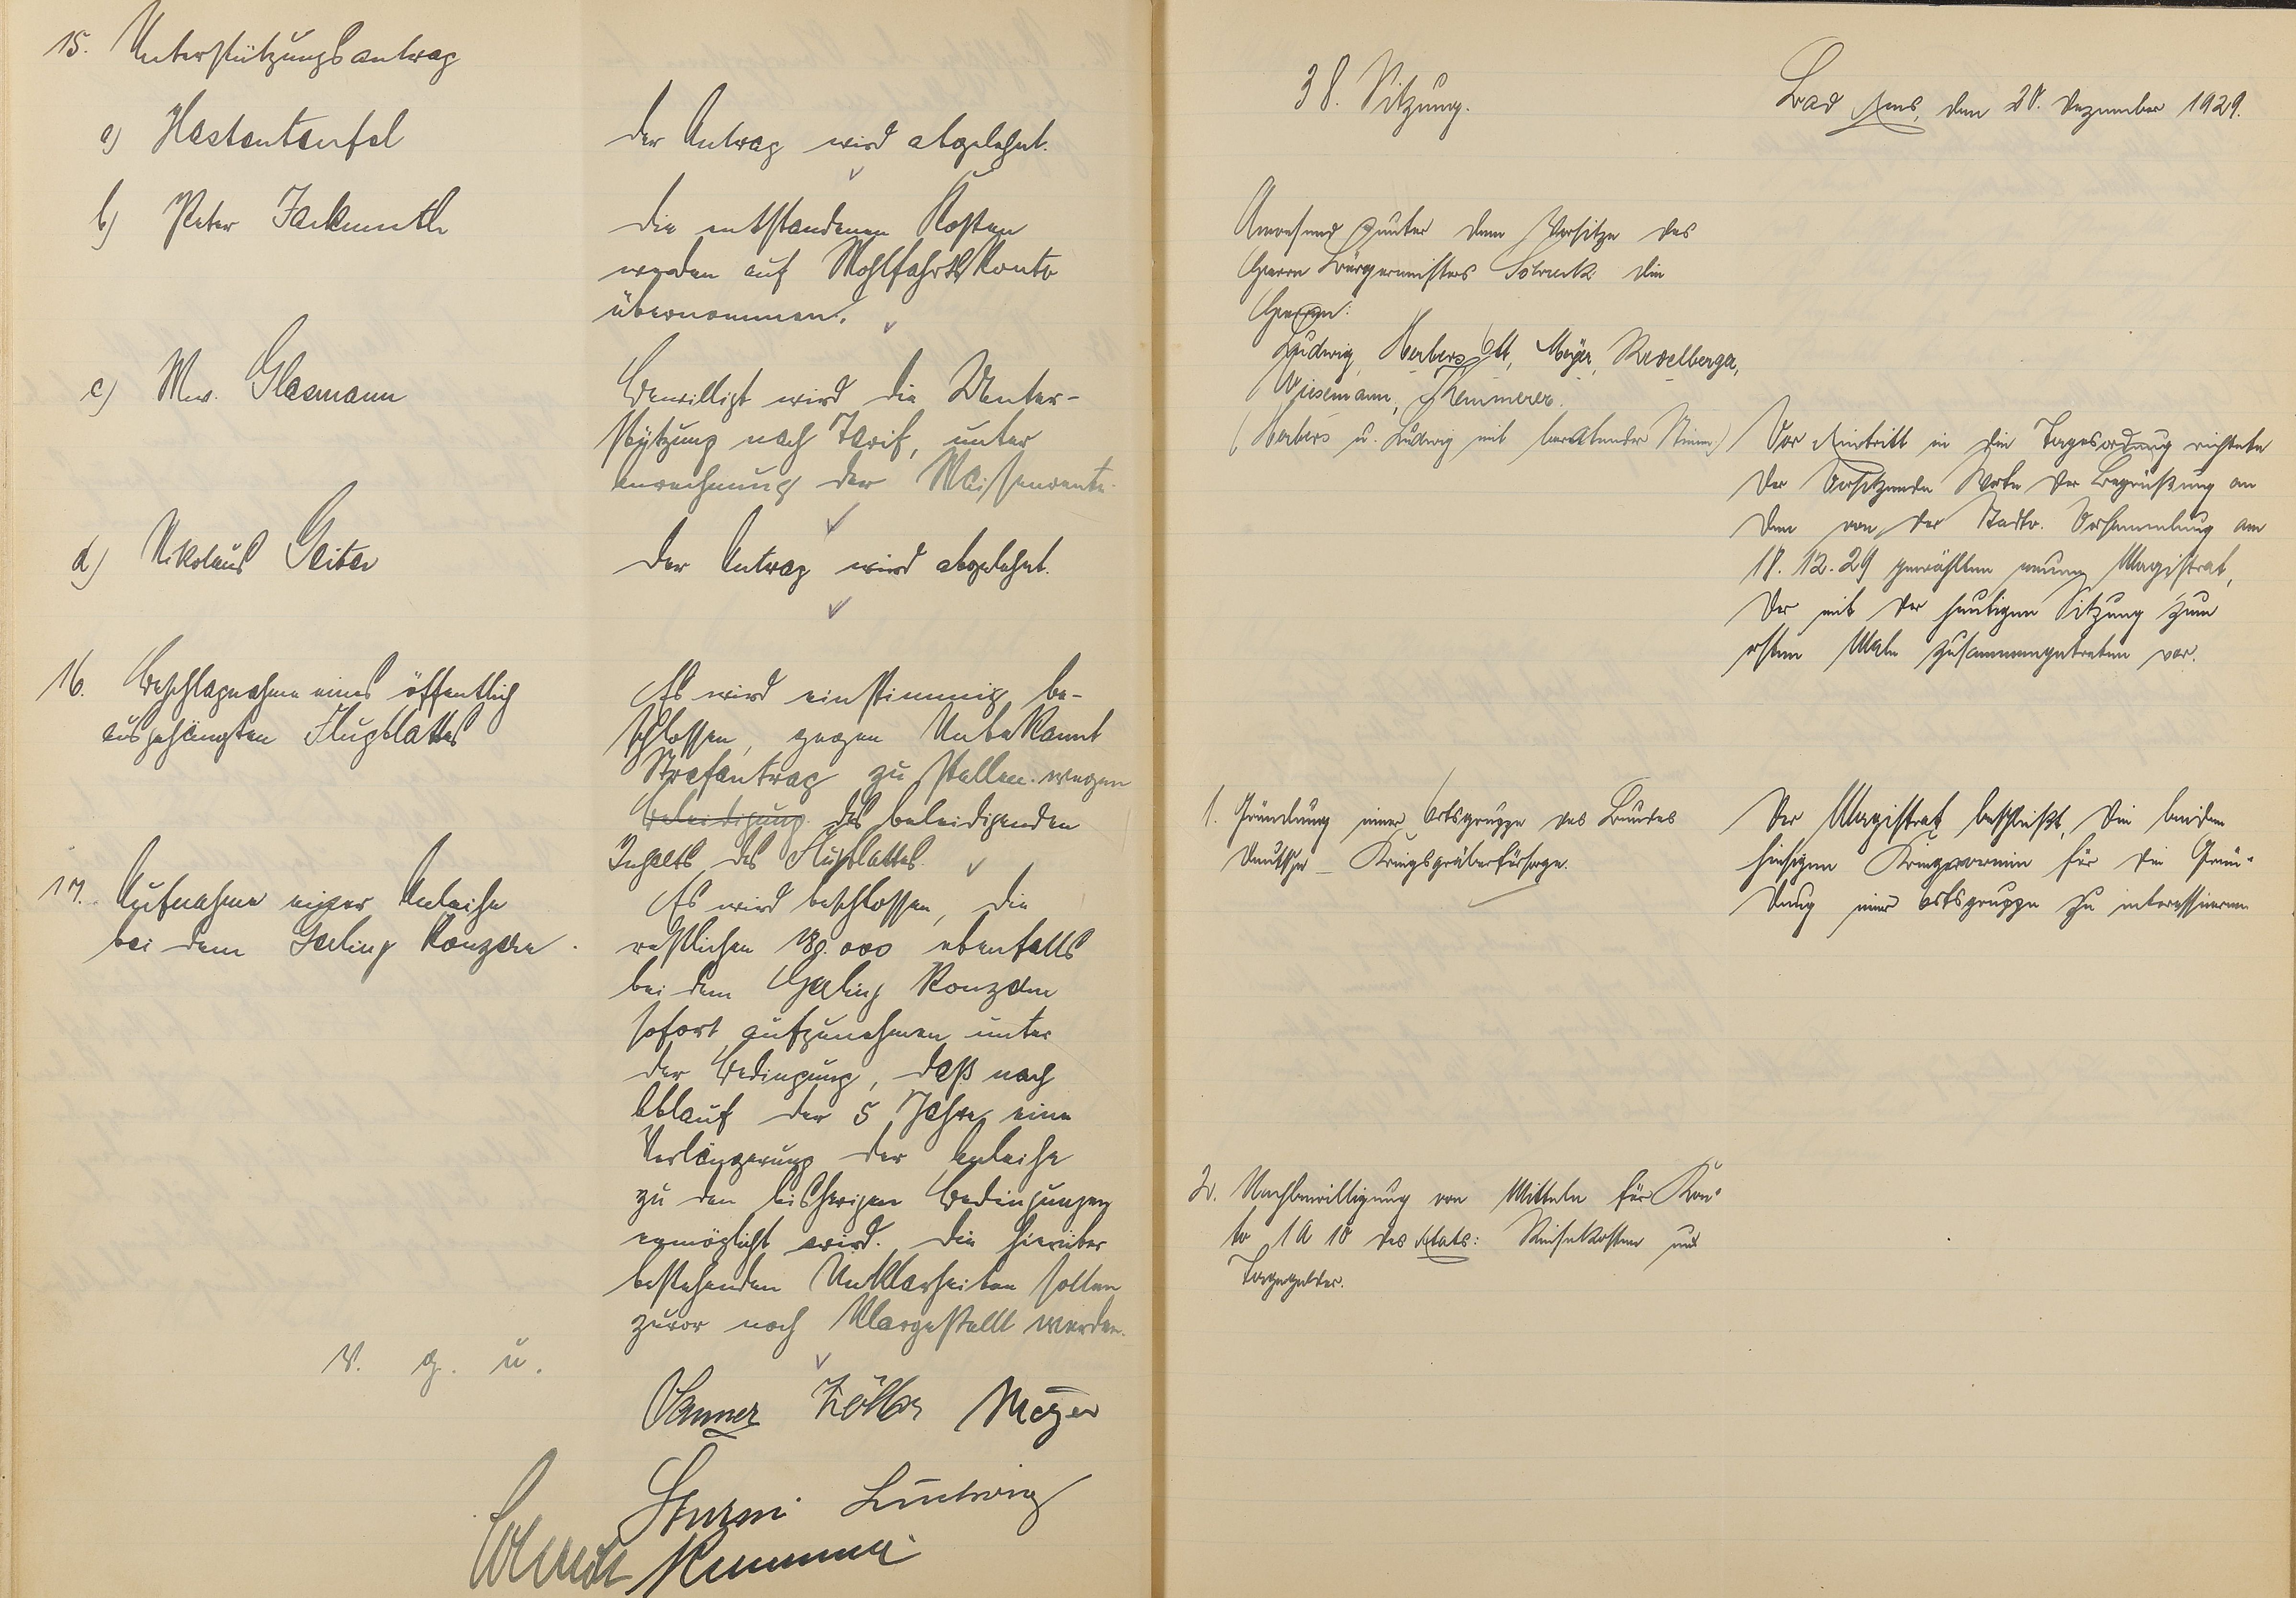 15. Unterstützungsantrag
a) Hastenteufel
der Antrag wird abgelehnt.
b) Peter Fackmuth
die entstandenen Kosten
werden auf Wohlfahrts Konto
übernommen.
c) Ww. Glasmann
Bewilligt wird die Unter-
stützung nach Tarif, unter
anrechnung der Waisenrente.
d) Nikolaus Geiter
der Antrag wird abgelehnt.
16. Beschlagnahme eines öffentlich
ausgehängten Flugblattes
Es wird einstimmig be-
schlossen, gegen Unbekannt
Strafantrag zu stellen wegen
Beleidigung des beleidigenden
Inhalts des Flugblattes.
17. Aufnahme einer Anleihe
bei dem Gerling Konzern.
Es wird beschlossen, die
restlichen 180.000 ebenfalls
bei dem Gerling Konzern
sofort aufzunehmen unter
der Bedingung, daß nach
Ablauf der 5 Jahre eine
Verlängerung der Anleihe
zu den bisherigen Bedingungen
ermöglicht wird. Die hierüber
bestehenden Unklarheiten sollen
zuvor noch klargestellt werden.
V. g. u.
Meyer
Sturm Ludwig
38. Sitzung.
Bad Ems, den 28. Dezember 1929.
Anwesend unter dem Vorsitze des
Herrn Bürgermeisters die
Herren:
Ludwig, Herbers, Ott, Meyer,
Wiesemann, Kemmerer.
(Herbers u. Ludwig mit beratender Stimme)
Vor Eintritt in die Tagesordnung richtete
der Vorsitzende Worte der Begrüßung an
den von der Stadtv. Versammlung am
18.12.29 gewählten neuen Magistrat,
der mit der heutigen Sitzung zum
ersten Male zusammengetreten war.
1. Gründung einer Ortsgruppe des Bundes
Deutscher Kriegsgräberfürsorge.
Der Magistrat beschließt, die beiden
hiesigen Kriegervereine für die Grün-
dung einer Ortsgruppe zu interessieren
2. Nachbewilligung von Mitteln für Kon-
to 1 A 18 des Etats: Reisekosten und
Tagegelder.